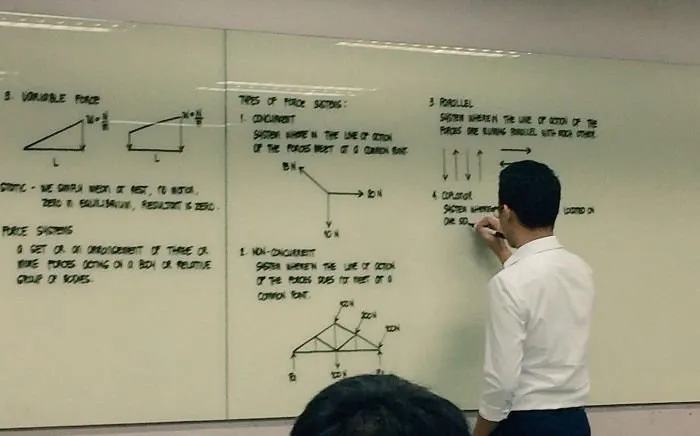 3. VARIABLE FORCE
W = N/m
W = N/m
L
L
STATIC - WE SIMPLY MEAN AT REST, NO MOTION,
ZERO IN EQUILIBRIUM, RESULTANT IS ZERO.
FORCE SYSTEMS
A SET OR AN ARRANGEMENT OF THREE OR
MORE FORCES ACTING ON A BODY OR RELATIVE
GROUP OF BODIES.
TYPES OF FORCE SYSTEMS:
1. CONCURRENT
SYSTEM WHERE IN THE LINE OF ACTION
OF THE FORCES MEET AT A COMMON POINT
15 N
20 N
10 N
2. NON-CONCURRENT
SYSTEM WHERE'N THE LINE OF ACTION
OF THE FORCES DOES NOT MEET AT A
COMMON POINT.
100N
200N
100N
100 N
3. PARALLEL
SYSTEM WHERE IN THE LINE OF ACTION OF THE
FORCES ARE RUNNING PARALLEL WITH EACH OTHER.
4. COPLANAR
SYSTEM LOCATED ON
ONE